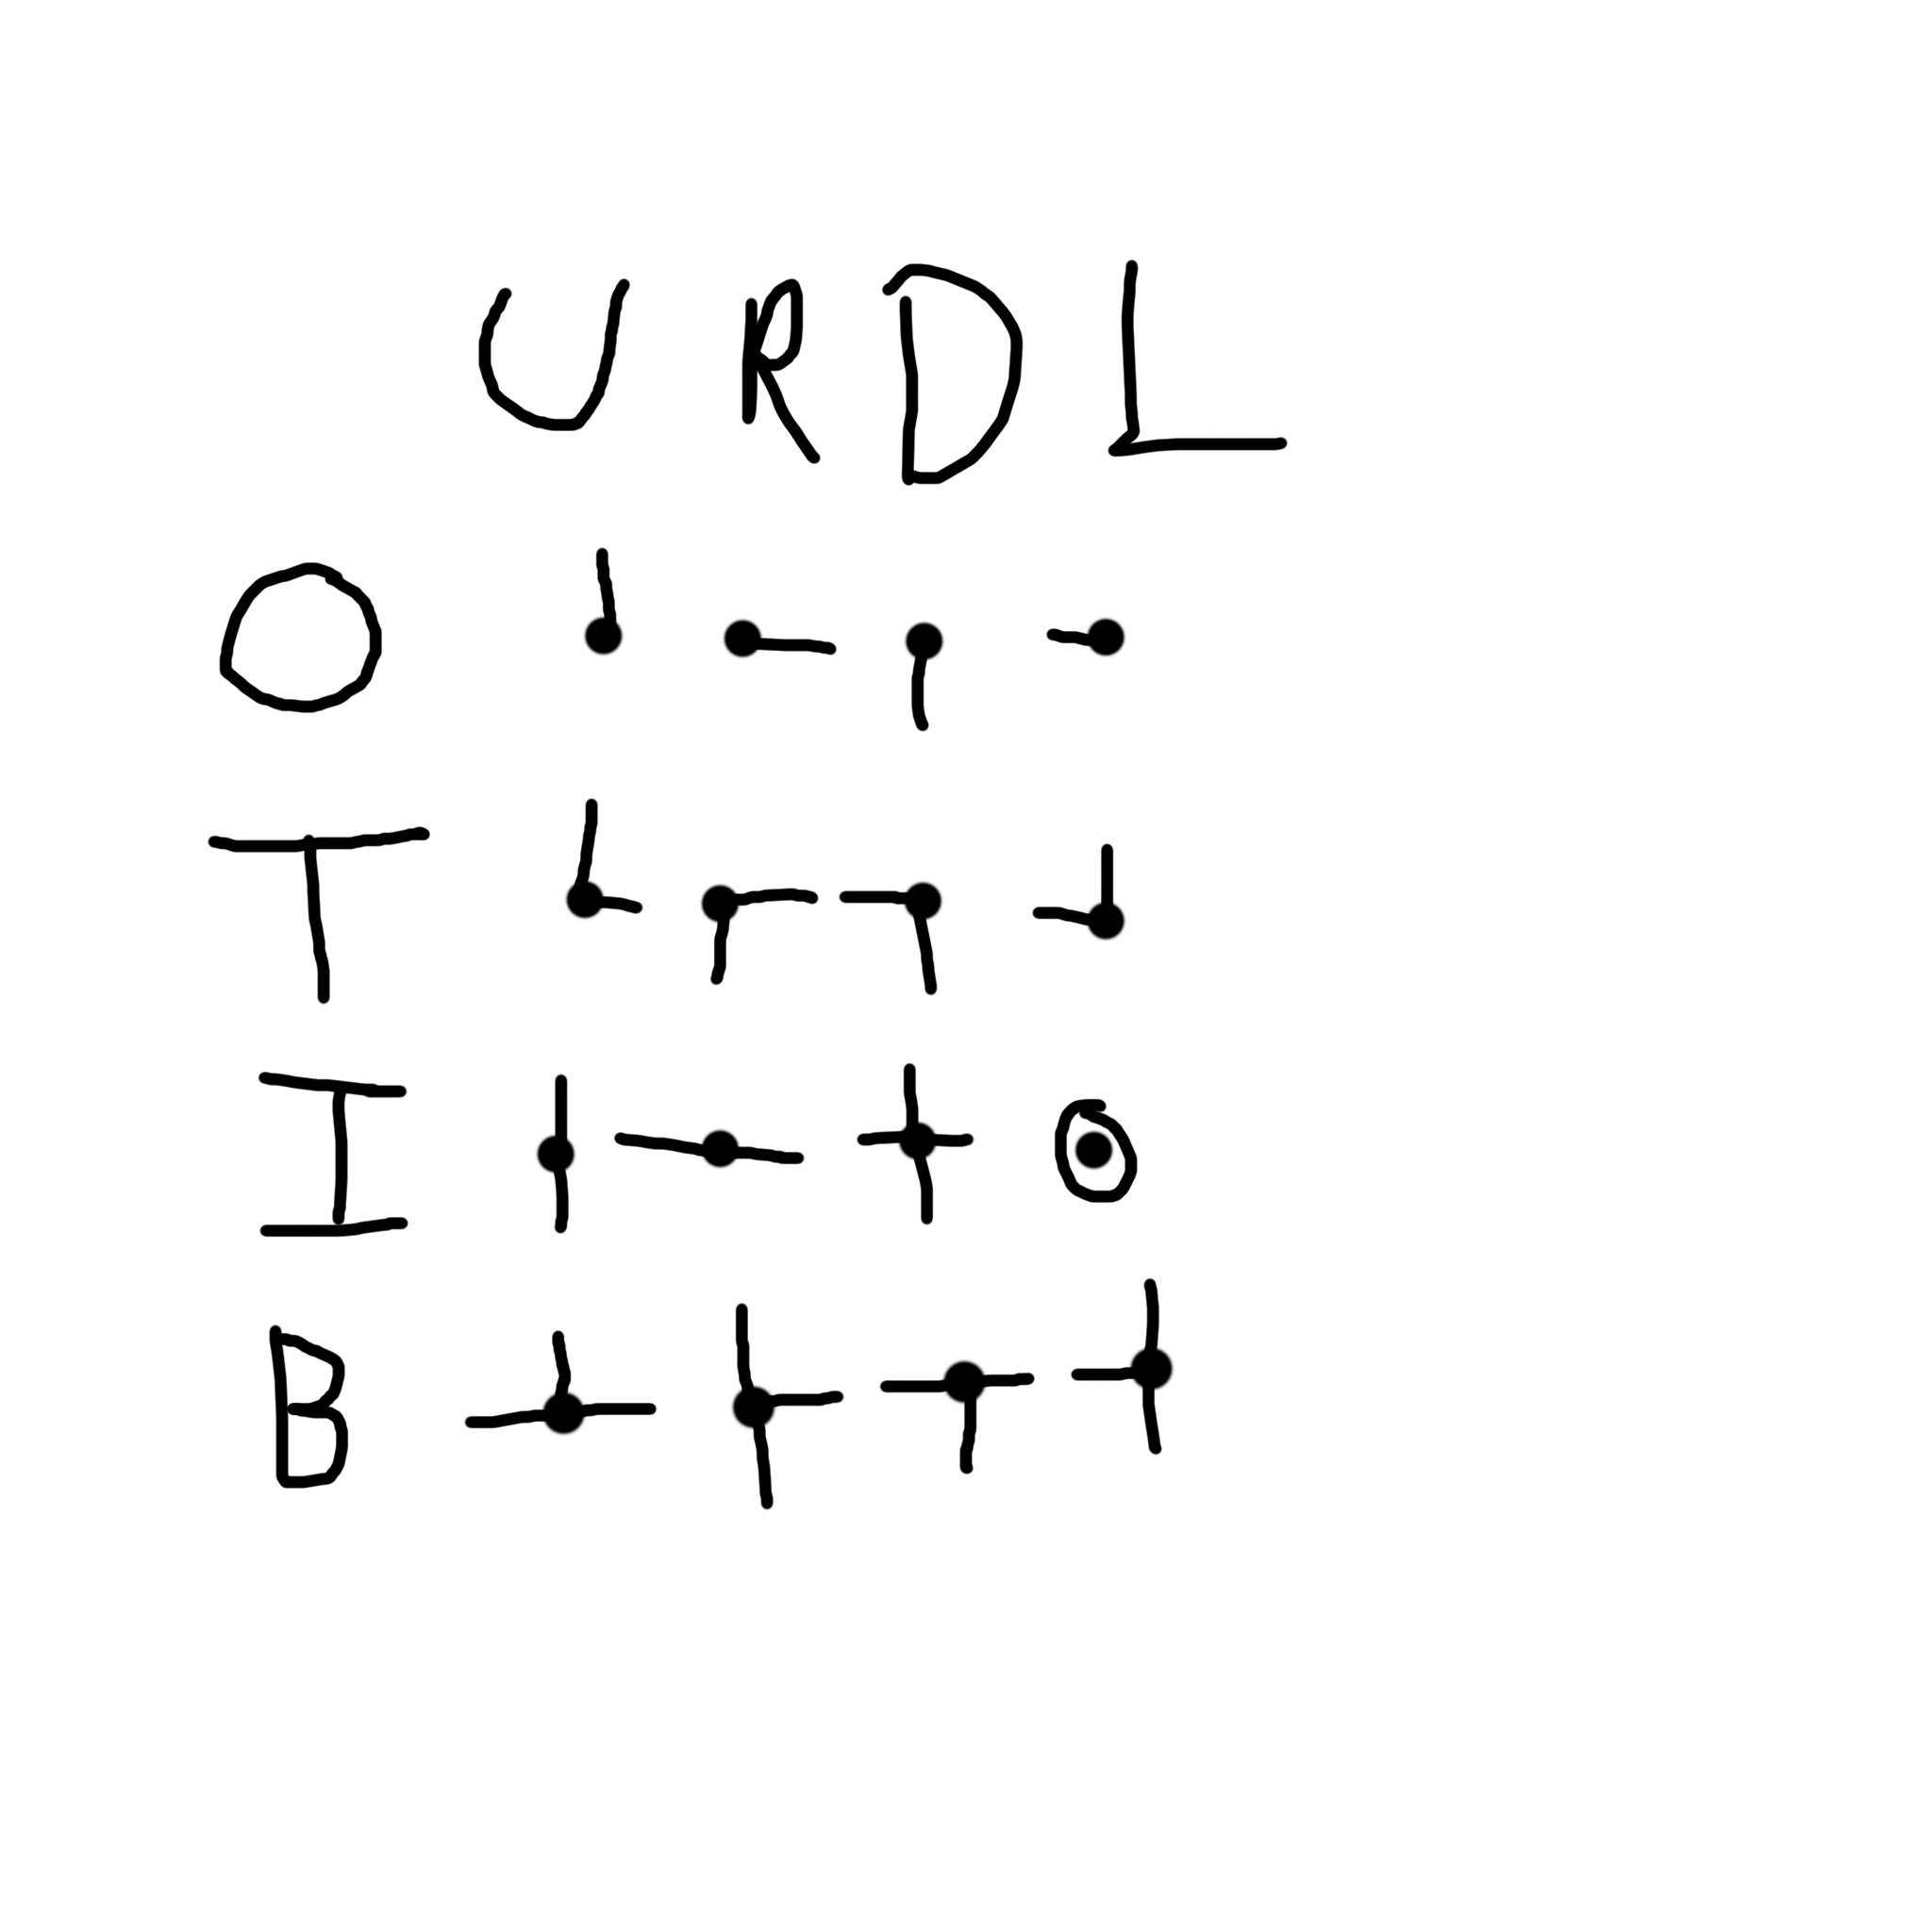 U R D L
O
T
I
B